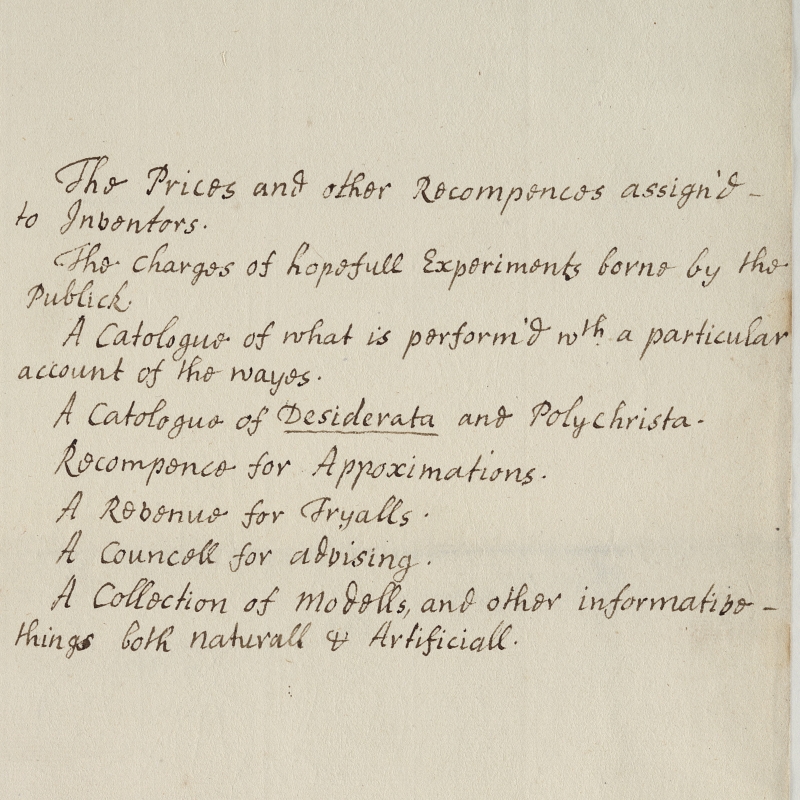 The Prices and other Recompences assign'd –
to Inventors.
The Charges of hopefull Experiments borne by the
Publick.
A Catologue of what is perform'd wth. a particular
account of the wayes.
A Catologue of Desiderata and Polychrista.
Recompence for Appoximations.
A Revenue for Tryalls.
A Councell for advising.
A Collection of Modells, and other informative –
things both naturall & Artificiall.